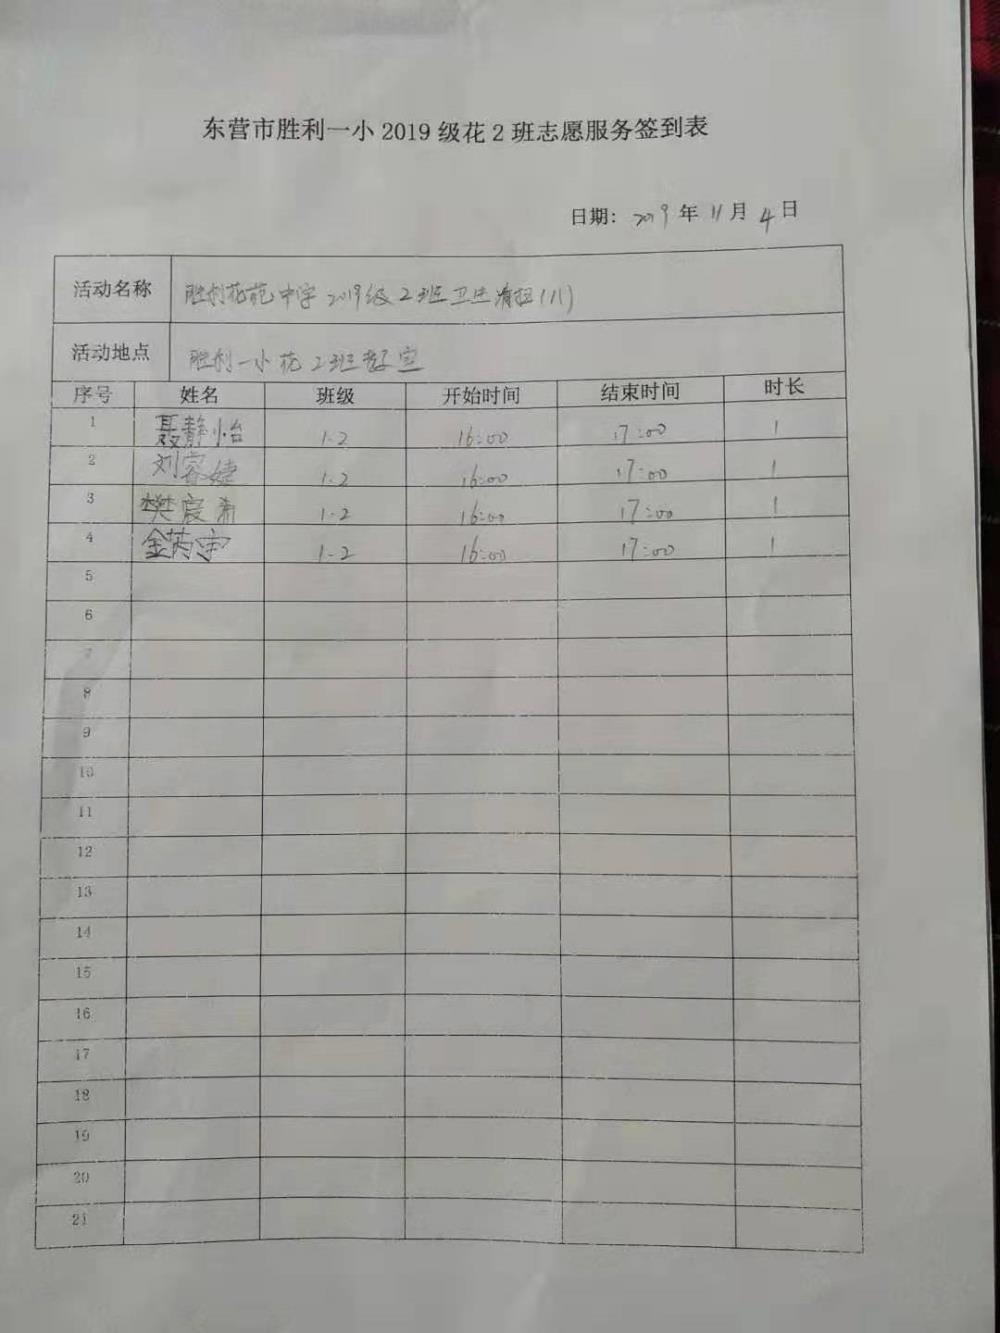 东营市胜利一小2019级花2班志愿服务签到表
日期: 2019年11月4日
活动名称 胜利花苑中学2019级2班卫生清扫(八)
活动地点 胜利一小花2班教室
序号 姓名 班级 开始时间 结束时间 时长
1 聂静怡 1.2 16:00 17:00 1
2 刘容婕 1.2 16:00 17:00 1
3 樊宸希 1.2 16:00 17:00 1
4 金芮宇 1.2 16:00 17:00 1
5
6
7
8
9
10
11
12
13
14
15
16
17
18
19
20
21